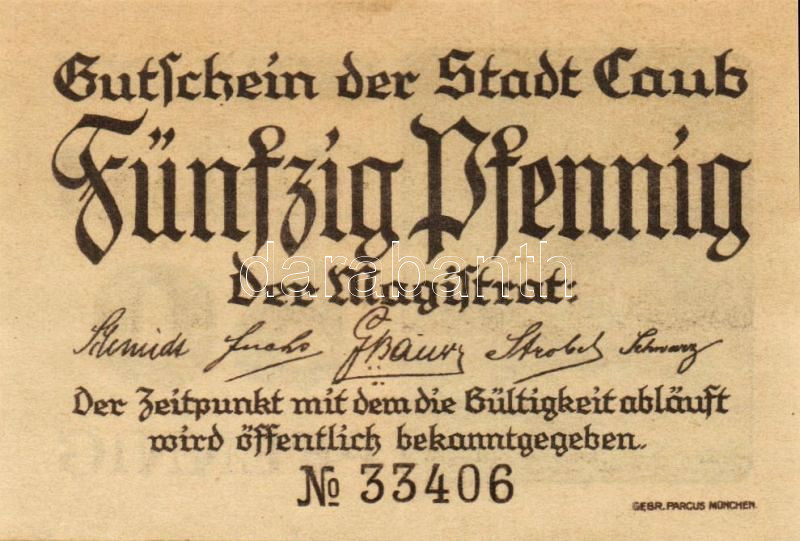 Gutſchein der Stadt Caub
Fünfzig Pfennig
Der Magiſtrat:
darabanth
Schmidt Fuchs G. Bauer Strobel Schwarz
Der Zeitpunkt mit dem die Gültigkeit abläuft
wird öffentlich bekanntgegeben.
№ 33406
GEBR. PARCUS MÜNCHEN.